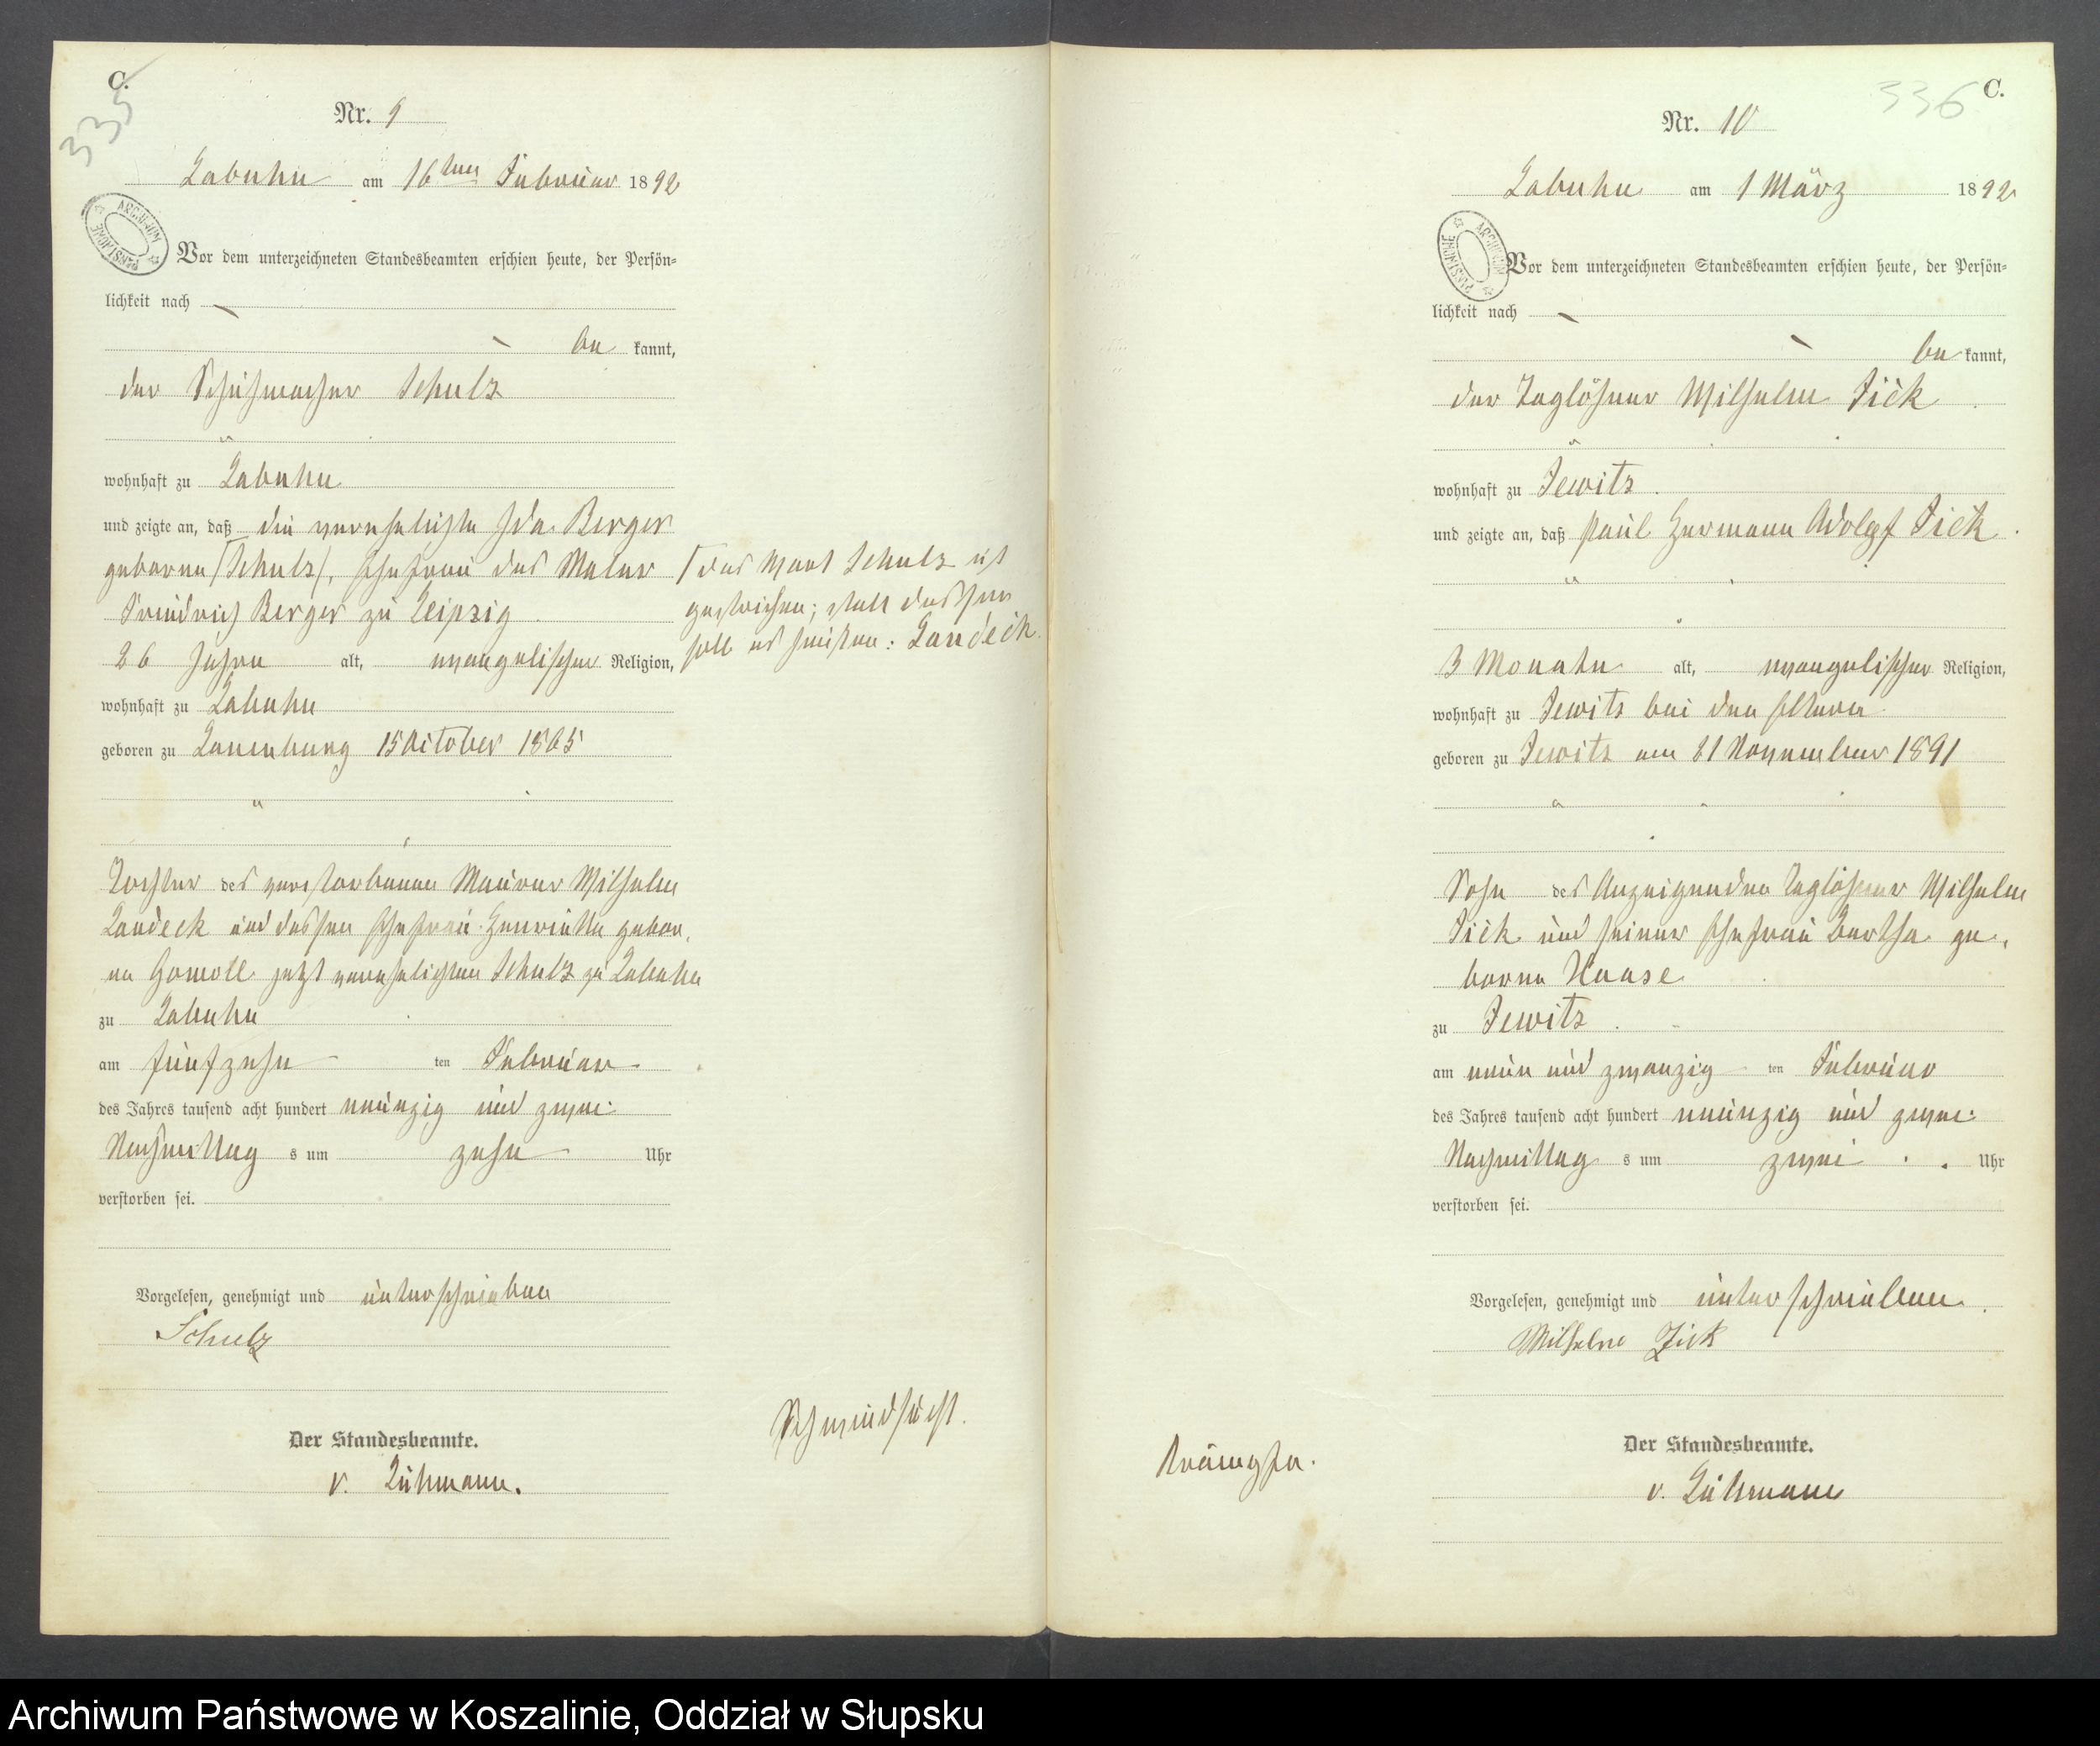 C.
335
Nr. 9
Labuhn am 16ten Februar 1892
Vor dem unterzeichneten Standesbeamten erschien heute, der Persön-
lichkeit nach
be kannt,
der Schuhmacher Schulz
wohnhaft zu Labuhn
und zeigte an, daß die verehelichte Ida Berger
geborne (Schulz), Ehefrau des Maler
Friedrich Berger zu Leipzig
26 Jahre alt, evangelischer Religion,
wohnhaft zu Labuhn
geboren zu Lauenburg 15 October 1865
Tochter des verstorbenen Maurer Wilhelm
Landeck und dessen Ehefrau Henriette gebor,
ne Gomoll jetzt verehelichten Schulz zu Labuhn
zu Labuhn
am fünfzehn ten Februar
des Jahres tausend acht hundert neunzig und zwei
Nachmittag s um zehn Uhr
verstorben sei.
Vorgelesen, genehmigt und unterschrieben
Schulz
Der Standesbeamte.
v. Lühmann.
das Wort Schulz ist
gestrichen; statt dessen
soll es heißen: Landeck
Schwindsucht.
336
C.
Nr. 10
Labuhn am 1 März 1892
Vor dem unterzeichneten Standesbeamten erschien heute, der Persön-
lichkeit nach
be kannt,
der Taglöhner Wilhelm Fick
wohnhaft zu Jewitz
und zeigte an, daß Paul Hermann Adolf Fick
3 Monate alt, evangelischer Religion,
wohnhaft zu Jewitz bei den Eltern
geboren zu Jewitz am 21 November 1891
Sohn des Anzeigenden Taglöhner Wilhelm
Fick und seiner Ehefrau Bertha ge,
borne Haase
zu Jewitz
am neun und zwanzig ten Februar
des Jahres tausend acht hundert neunzig und zwei
Nachmittag s um zwei Uhr
verstorben sei.
Vorgelesen, genehmigt und unterschrieben
Wilhelm Fick
Der Standesbeamte.
v. Lühmann
Krämpfe.
Archiwum Państwowe w Koszalinie, Oddział w Słupsku